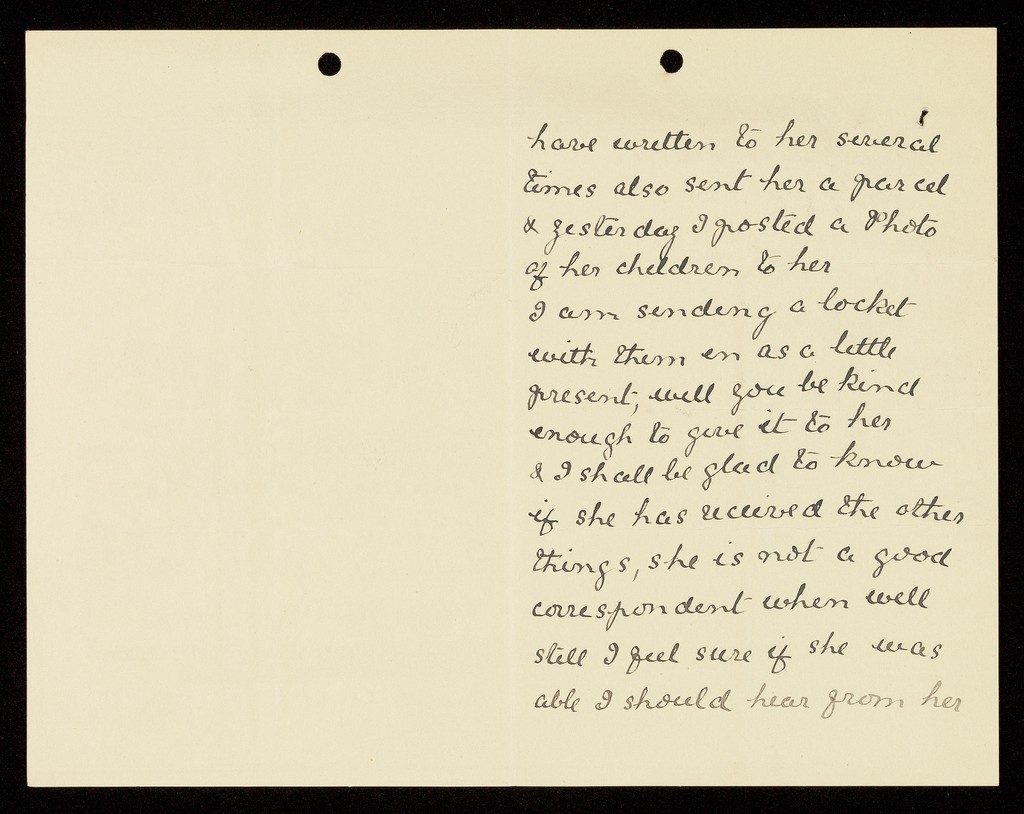 have written to her several
times also sent her a parcel
& yesterday I posted a Photo
of her children to her
I am sending a locket
with them in as a little
present, will you be kind
enough to give it to her
& I shall be glad to know
if she has received the other
things, she is not a good
correspondent when well
still I feel sure if she was
able I should hear from her